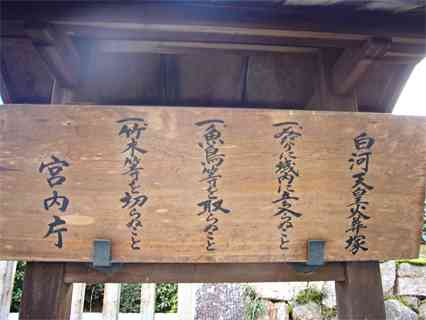 白河天皇火葬塚
一みだりに域内に立入らぬこと
一魚鳥等を取らぬこと
一竹木等を切らぬこと
宮内庁